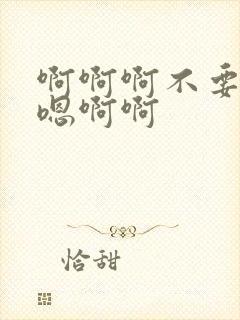 啊啊啊不要
嗯啊啊
恰甜